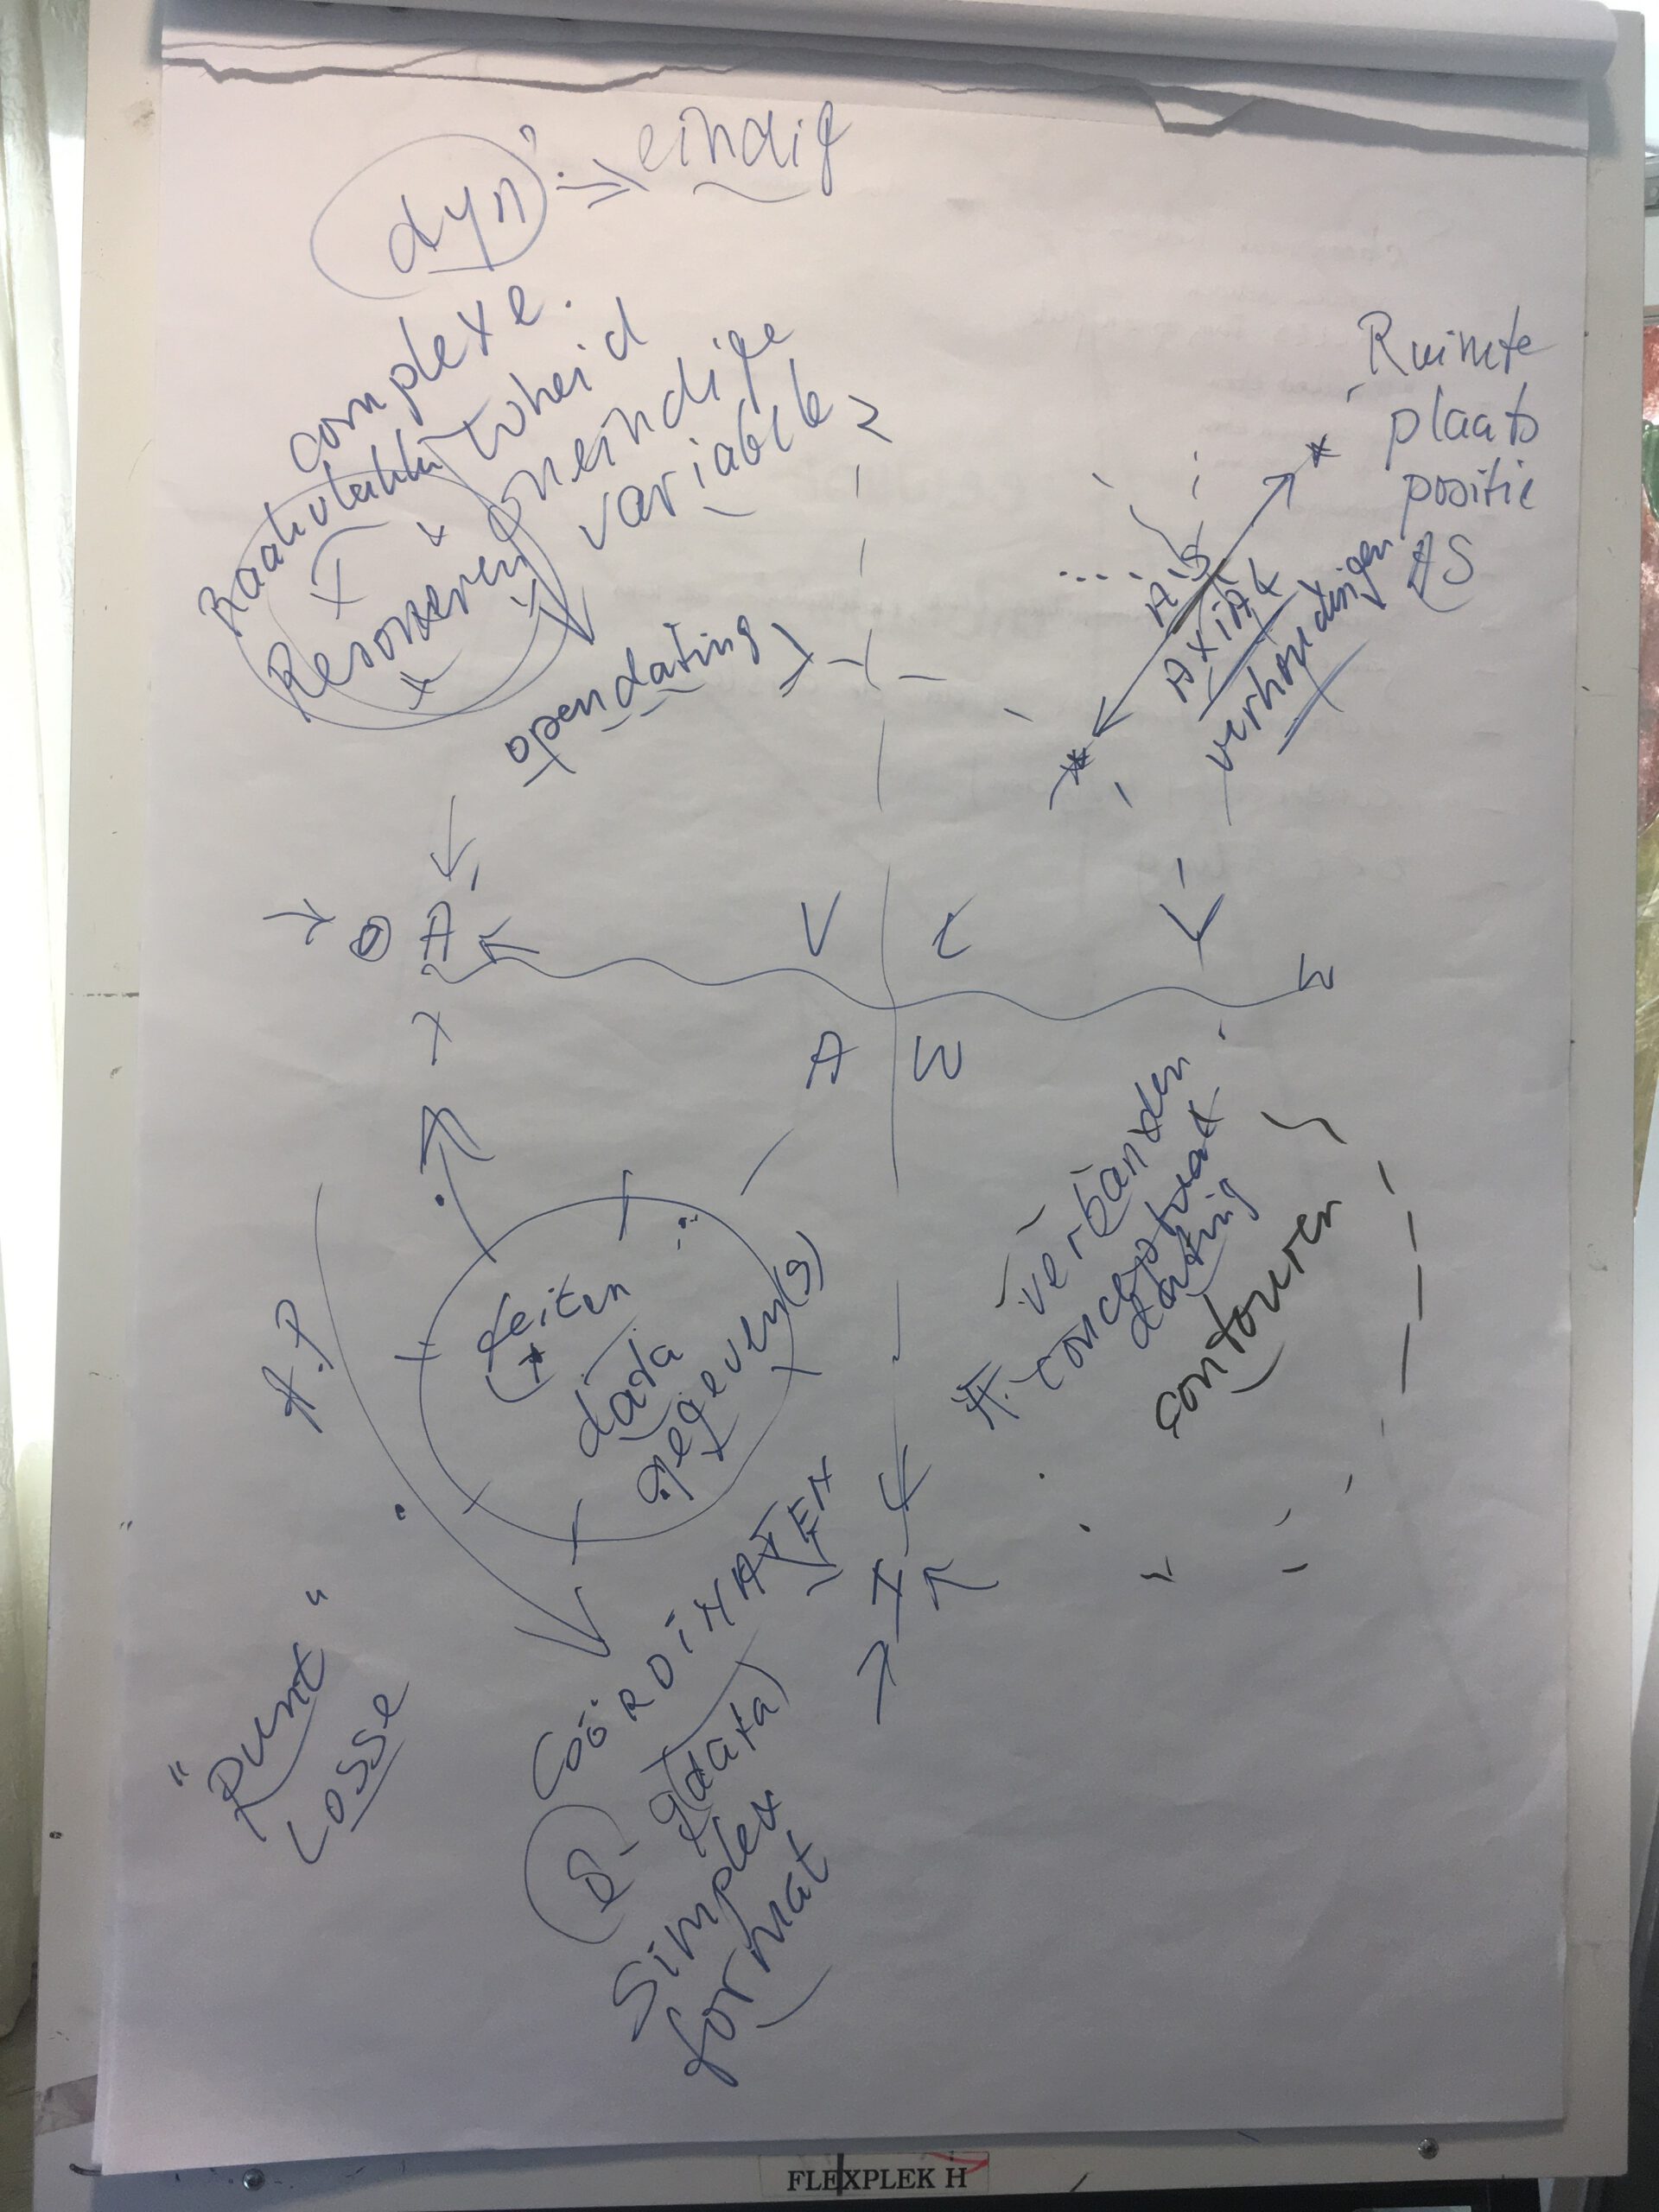 dyn. → eindig
complexe.
Raakvlakken
heid
Resoneren
oneindige
variabele
opendating
Ruimte
plaats
positie
AS
AS
AXiAL
verhoudingen
A
V
A
verbanden
conceptual
dating
contouren
A.P
feiten
data
gegeven(s)
"Punt"
Losse
COÖRDINATEN
(data)
Simplex
format
FLEXPLEK H